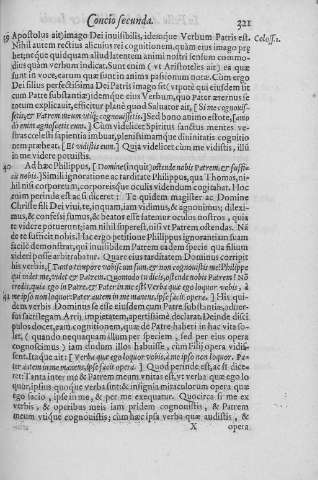 Concio secunda. 321
39 Apostolus ait) imago Dei inuisibilis, idemque Verbum Patris est. Coloss. 1.
Nihil autem rectius alicuius rei cognitionem, quàm eius imago præ
bet; neque quidquam aliud latentem animi nostri sensum commo-
diùs quàm verbum indicat. Sunt enim (vt Aristoteles ait) ea quæ
sunt in voce, earum quæ sunt in animis passionum notæ. Cùm ergo
Dei filius perfectissima Dei Patris imago sit (vtpotè qui eiusdem sit
cum Patre substantiæ) idemque eius Verbum, quo Pater æternus se
totum explicauit, efficitur planè quod Saluator ait, [ Si me cognouis-
setis, & Patrem meum vtiq; cognouissetis. ] Sed bono animo estote, [ amo
dò enim agnoscetis eum. ] Cùm videlicet Spiritus sanctus mentes ve-
stras cælesti sapientia imbuat, plenissimamque diuinitatis cognitio
nem præbeat. [ Et vidistis eum. ] Quia videlicet cùm me vidistis, illū
in me videre potuistis.
40 Ad hæc Philippus, [ Domine (inquit) ostende nobis Patrem, & suffi-
cit nobis. ] Simili ignoratione ac tarditate Philippus, qua Thomas, ni-
hil nisi corporeum, corporeisque oculis videndum cogitabat. Hoc
enim perinde est ac si diceret: Te quidem magister ac Domine
Christe fili Dei viui, te, inquam, iam vidimus, & agnouimus, dilexi-
mus, & confessi sumus, & beatos esse fatemur oculos nostros, quia
te videre potuerunt: iam nihil superest, nisi vt Patrem ostendas. Nā
de te sufficit nobis. Hac ergo petitione Philippus ignorantiam suam
facilè demonstrat, qui inuisibilem Patrem eadem specie qua filium
videri posse arbitrabatur. Quare eius tarditatem Dominus corripit
his verbis, [ Tanto tempore vobiscum sum, & non cognouistis me? Philippe
qui videt me, videt & Patrem. Quomodo tu dicis, ostende nobis Patrem? nō
credis, quia ego in Patre, & Pater in me est? Verba quæ ego loquor vobis, à
41 me ipso non loquor: Pater autem in me manens, ipse facit opera. ] His qui-
dem verbis Dominus se esse eiusdem cum Patre substantiæ, aduer-
sus sacrilegam Arrij impietatem, apertissimè declarat. Deinde disci
pulos docet, eam cognitionem, quæ de Patre haberi in hac vita so-
let, ( quando nequaquam illum per speciem, sed per eius opera
cognoscimus ) iam dudum illos habuisse, cùm Filij opera vidis-
sent. Itaque ait: [ Verba quæ ego loquor vobis, à me ipso non loquor. Pa-
ter autem in me manens, ipse facit opera. ] Quod perinde est, ac si dice
ret: Tanta inter me & Patrem meum vnitas est, vt verba quæ ego lo
quor, ipsius quoque verba sint: & insignia miraculorum opera quæ
ego facio, ipse in me, & per me exequatur. Quocirca si me ex
verbis, & operibus meis iam pridem cognouistis, & Patrem
meum vtique cognouistis; cùm hæc ipsa verba quæ audistis, &
X opera